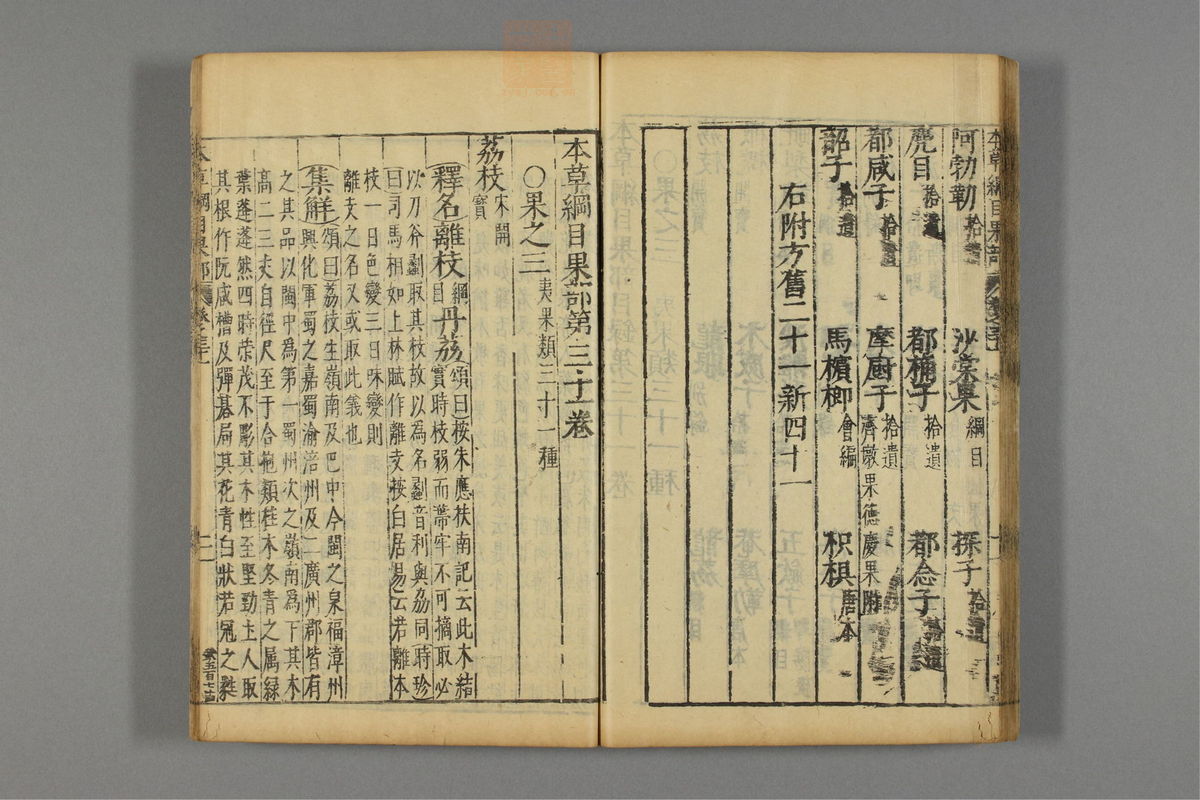 阿勃勒拾遺 沙棠果綱目 探子拾遺
麂目拾遺 都桷子拾遺 都念子拾遺
都咸子拾遺 摩厨子拾遺齊墩果德慶果附
韶子拾遺 馬檳榔會編 枳椇唐本
右附方舊二十一新四十一
本草綱目果部第三十一卷
○果之三夷果類三十一種
荔枝宋開寶
釋名離枝綱目丹荔頌曰按朱應扶南記云此木結
實時枝弱而蒂牢不可摘取必
以刀斧劙取其枝故以為名劙音利與荔同時珍
曰司馬相如上林賦作離支按白居易云若離本
枝一日色變三日味變則
離支之名又或取此義也
集解頌曰荔枝生嶺南及巴中今閩之泉福漳州
興化軍蜀之嘉蜀渝涪州及二廣州郡皆有
之其品以閩中為第一蜀州次之嶺南為下其木
高二三丈自徑尺至于合抱類桂木冬青之属緑
葉蓬蓬然四時荣茂不彫其木性至堅勁土人取
其根作阮咸槽及彈棊局其花青白狀若冠之㽔
本草綱目果部